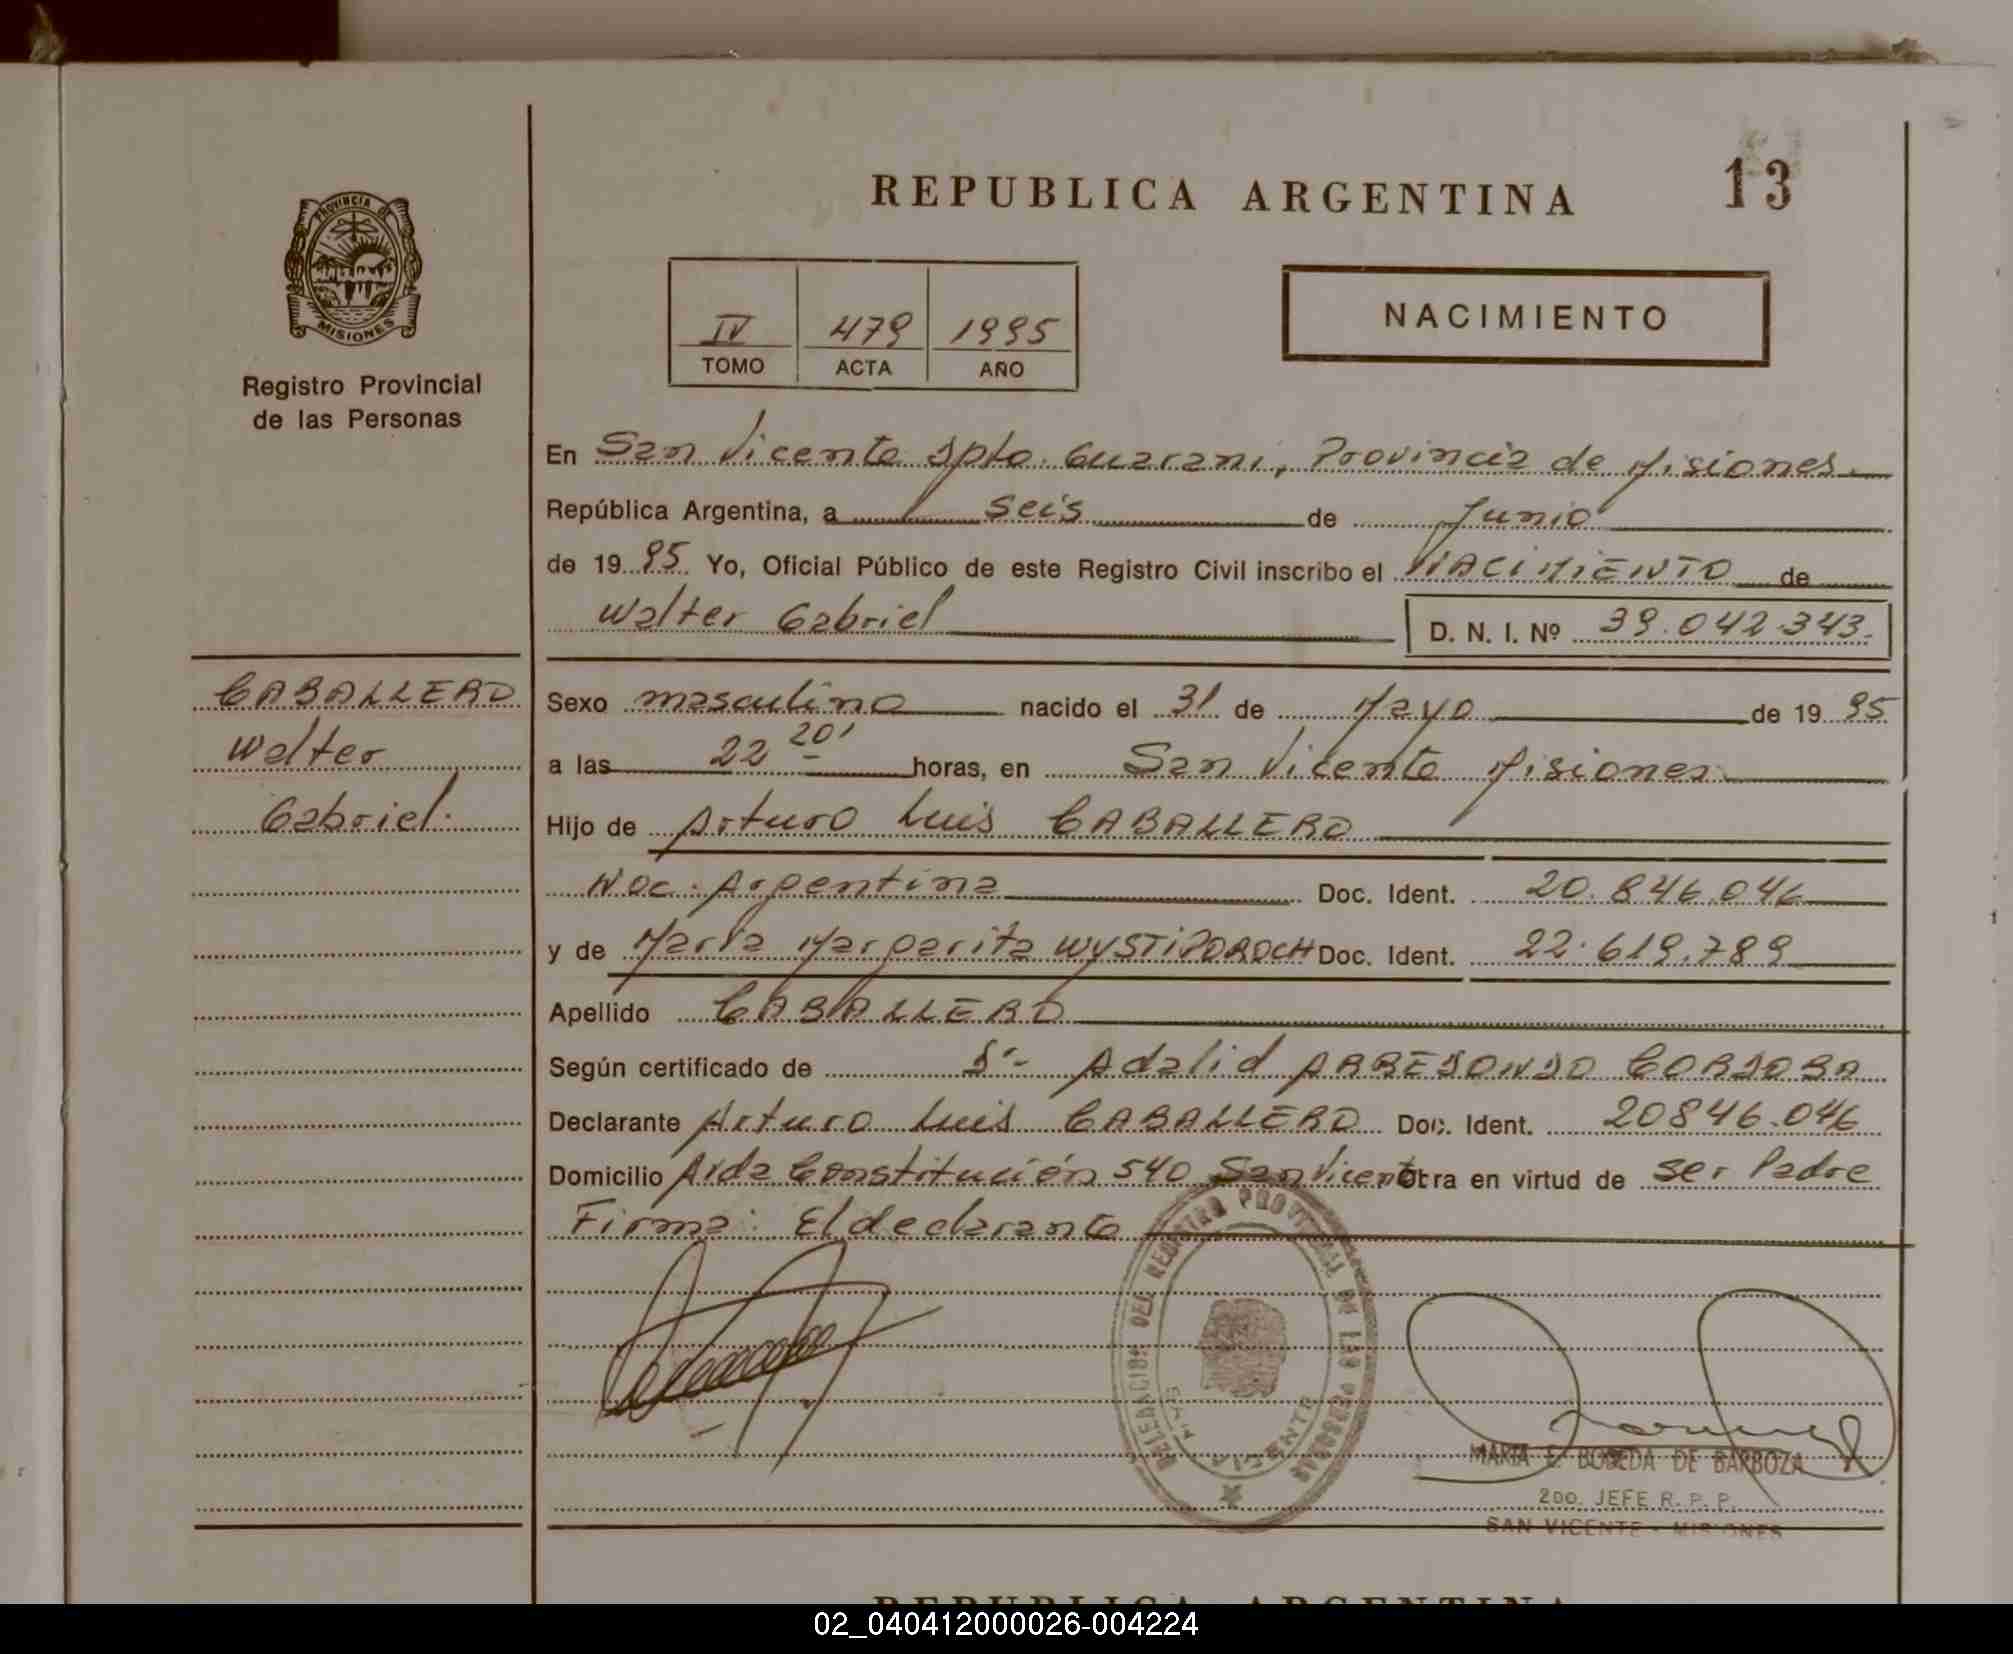 REPUBLICA ARGENTINA
13
PROVINCIA DE
MISIONES
Registro Provincial
de las Personas
IV 479 1995
TOMO ACTA AÑO
NACIMIENTO
En San Vicente Dpto. Guarani, Provincia de Misiones
República Argentina, a seis de Junio
de 1995 Yo, Oficial Público de este Registro Civil inscribo el NACIMIENTO de
Walter Gabriel D. N. I. Nº 39.042.343.
CABALLERO
Walter
Gabriel.
Sexo masculino nacido el 31 de Mayo de 1995
a las 22 20' horas, en San Vicente Misiones
Hijo de Arturo Luis CABALLERO
Nac. Argentina Doc. Ident. 20.846.046
y de María Margarita WYSTIPOROCH Doc. Ident. 22.619.789
Apellido CABALLERO
Según certificado de Dr. Adalid ARREDONDO CORDOBA
Declarante Arturo Luis CABALLERO Doc. Ident. 20846.046
Domicilio Avda Constitución 540 San Vicente Obra en virtud de ser Padre
Firma: El declarante
DELEGACION DEL REGISTRO PROVINCIAL DE LAS PERSONAS
SAN VICENTE
MARIA E. BOBEDA DE BARBOZA
2DO. JEFE R. P. P.
SAN VICENTE - MISIONES
REPUBLICA ARGENTINA
02_040412000026-004224